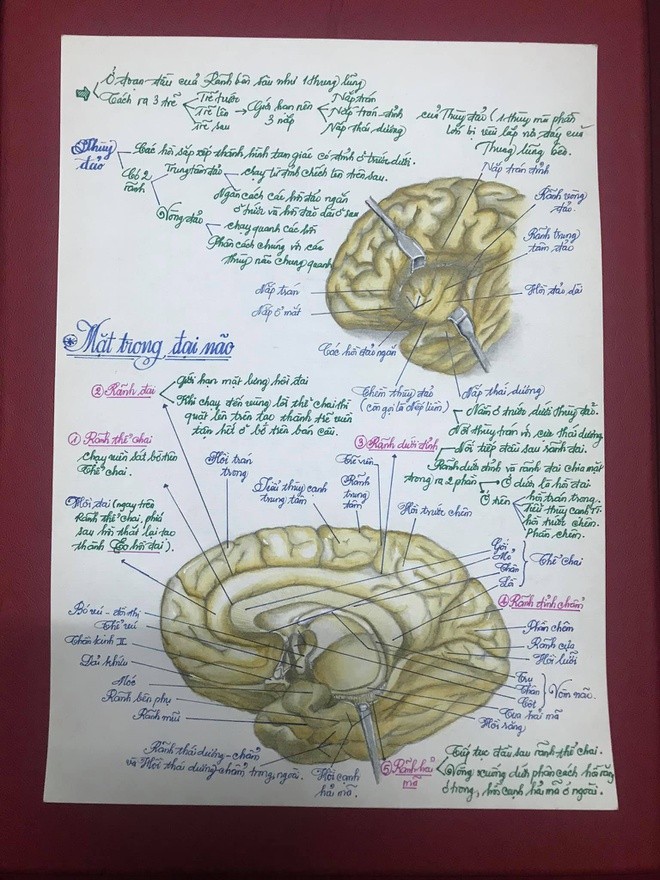 Ở đoạn đầu của Rãnh bên sâu như 1 thung lũng
Tách ra 3 trẽ
Trẽ trước
Trẽ lên
Trẽ sau
Giới hạn nên 3 nắp
Nắp trán
Nắp trán đỉnh
Nắp thái dương
của Thùy đảo (1 thùy mà phần
lớn bị vùi lấp nơ đáy của
Thung lũng bên.
Thùy đảo
Các hồi sắp xếp thành hình tam giác có đỉnh ở trước dưới.
Có 2 rãnh
Trung tâm đảo
chạy từ đỉnh chếch lên trên sau.
Ngăn cách các hồi đảo ngắn
ở trước và hồi đảo dài ở sau
Vòng đảo
chạy quanh các hồi
Phân cách chúng với các
thùy não chung quanh
Nắp trán đỉnh
Rãnh vòng đảo.
Rãnh trung tâm đảo
Hồi đảo dài
Nắp trán
Nắp ổ mắt
Các hồi đảo ngắn
Thềm thùy đảo
(còn gọi là Nếp liềm)
Nắp thái dương
Mặt trong đại não
② Rãnh đai
Giới hạn mặt lưng hồi đai
Khi chạy đến vùng lồi thể chai thì
quặt lên trên tạo thành trẽ viền
tận hết ở bờ trên bán cầu.
① Rãnh thể chai
chạy viền sát bờ trên
Thể chai.
Hồi đai (ngay trên
Rãnh thể chai, phía
sau hồi thắt lại tạo
thành Eo hồi đai).
Hồi trán trong
Tiểu thùy cạnh trung tâm
Trẽ viền
Rãnh trung tâm
③ Rãnh dưới đỉnh
Nằm ở trước dưới thùy đảo.
Nối thùy trán với cực thái dương
Nối tiếp đầu sau rãnh đai.
Rãnh dưới đỉnh và rãnh đai chia mặt
trong ra 2 phần
Ở dưới là hồi đai
Ở trên
hồi trán trong.
Tiểu thùy cạnh TT
hồi trước chêm.
Phần chêm.
Hồi trước chêm
Gối
Mỏ
Thân
Lồi
Thể chai
④ Rãnh đỉnh chẩm
Phần chêm
Rãnh cựa
Hồi lưỡi
Trụ
Thân
Cột
Vòm não.
Tua hải mã
Hồi răng
Bó vú - đồi thị
Thể vú
Thần kinh II
Dải khứu
Móc
Rãnh bên phụ
Rãnh mũi
Rãnh thái dương - chẩm
và Hồi thái dương - chẩm trong, ngoài.
Hồi cạnh
hải mã.
⑤ Rãnh hải mã
Tiếp tục đầu sau rãnh thể chai.
Vòng xuống dưới phân cách hồi răng
ở trong, hồi cạnh hải mã ở ngoài.